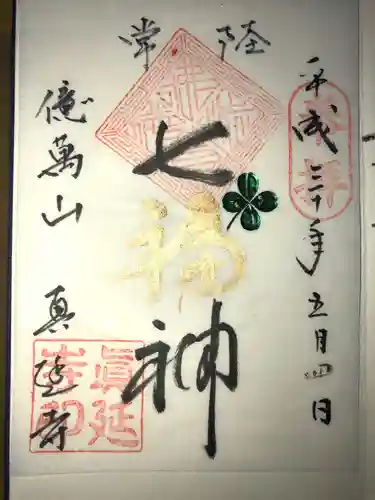 奉拝
平成三十年五月四日
常陸
七福神
億萬山
真延寺
眞延寺印